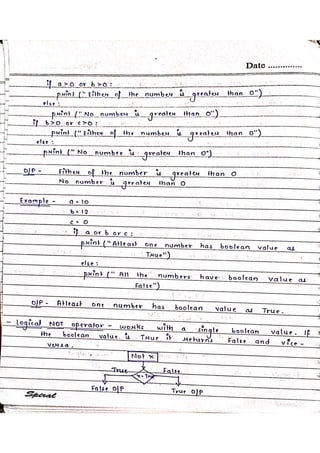 Date ..............
if a>0 or b>0 :
print ("Either of the number is greater than 0")
else :
print ("No number is greater than 0")
if b>0 or c>0 :
print ("Either of the number is greater than 0")
else :
print ("No number is greater than 0")
O/P - Either of the number is greater than 0
No number is greater than 0
Example - a = 10
b = 12
c = 0
if a or b or c :
print ("Atleast one number has boolean value as
True")
else :
print (" All the numbers have boolean value as
False")
O/P - Atleast one number has boolean value as True.
- Logical NOT operator - works with a single boolean value. If
the boolean value is True it returns False and vice -
versa.
Not x
True False
False O/P True O/P
Speral